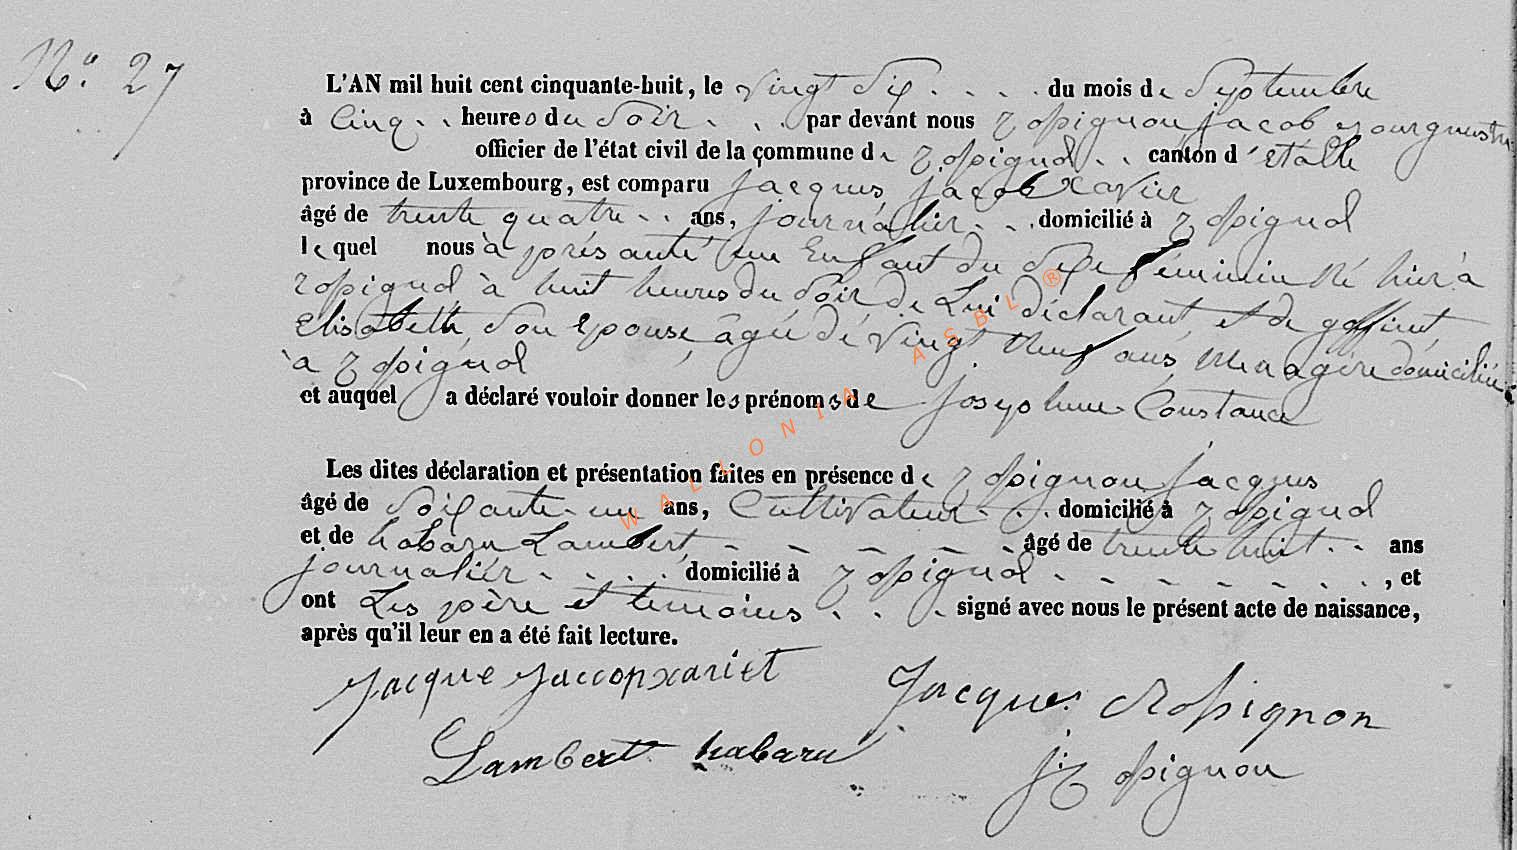 N.º 27
L'AN mil huit cent cinquante-huit, le vingt Six . . . . du mois de Septembre
à Cinq . . heures du Soir . . . par devant nous rossignon jacob bourguestre
officier de l'état civil de la commune de rossignol . . canton d'étalle
province de Luxembourg, est comparu jacques, jacob xavier
âgé de trente quatre . . ans, journalier . . . domicilié à rossignol
lequel nous à présanté un Enfant du Sexe féminin né hier à
rossignol à huit heures du Soir de Lui déclarant et de goffinet
Elisabeth, Son Epouse âgée de vingt neuf ans, menagère domiciliée
à rossignol
et auquel a déclaré vouloir donner les prénoms de Josephine Constance
Les dites déclaration et présentation faites en présence de rossignon Jacques
âgé de Soixante-un ans, Cultivateur . . . domicilié à rossignol
et de habaru Lambert . - - - - . âgé de trente huit . . ans
journaliér . . . . . domicilié à rossignol . - - - - . . . , et
ont Les père et temoins . . . signé avec nous le présent acte de naissance,
après qu'il leur en a été fait lecture.
Jacque Jaccopxariet Jacques Rossignon
Lambert habaru j: rossignon
WALLONIA ASBL ®